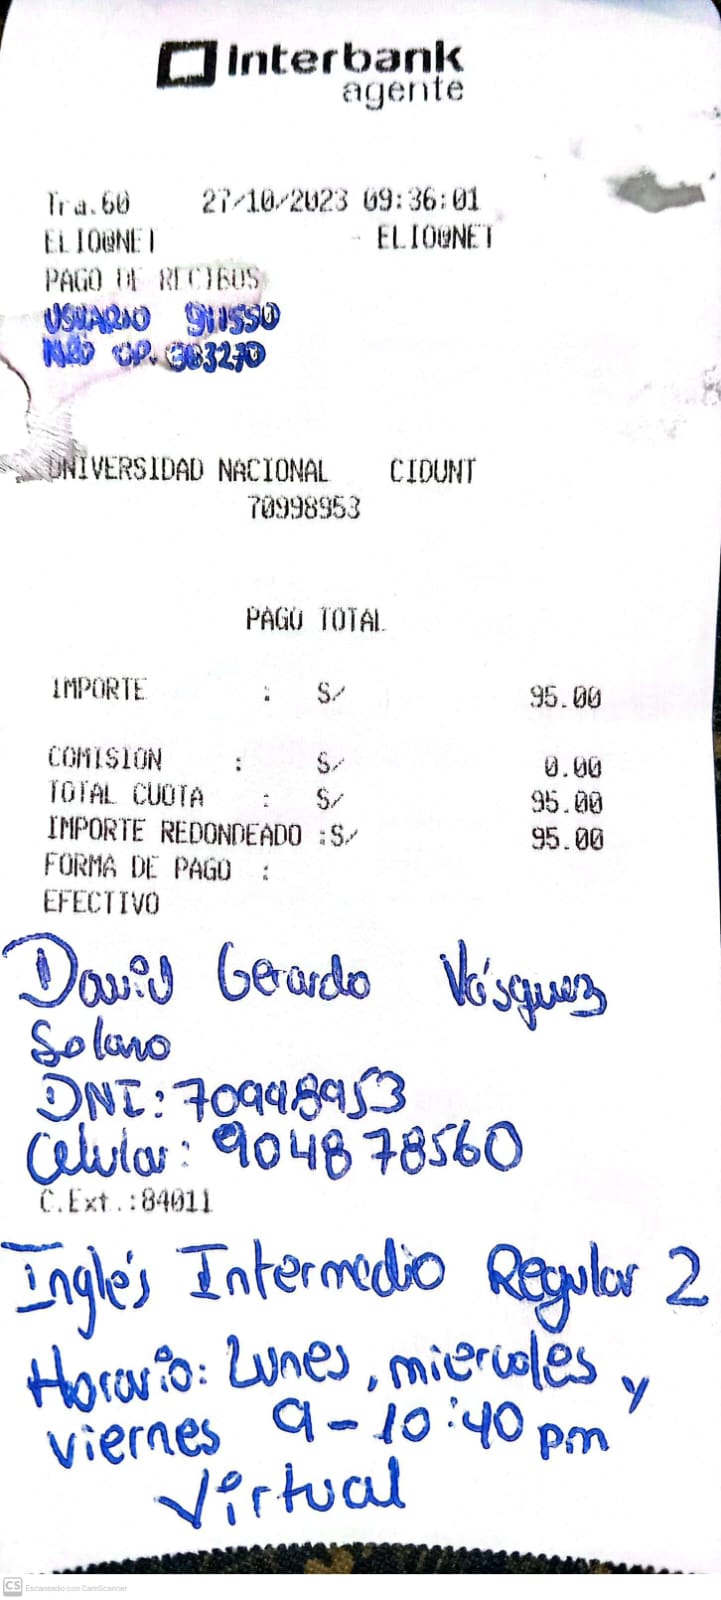 interbank
agente
Tra.60 27/10/2023 09:36:01
ELIO@NET - ELIO@NET
PAGO DE RECIBOS
USUARIO 911550
UNIVERSIDAD NACIONAL CIDUNT
70998953
PAGO TOTAL
IMPORTE : S/ 95.00
COMISION : S/ 0.00
TOTAL CUOTA : S/ 95.00
IMPORTE REDONDEADO :S/ 95.00
FORMA DE PAGO :
EFECTIVO
David Gerardo Vásquez
Solano
DNI: 70998953
Celular: 904878560
C.Ext.:84011
Inglés Intermedio Regular 2
Horario: Lunes, miercoles y
viernes 9-10:40 pm
Virtual
CS Escaneado con CamScanner